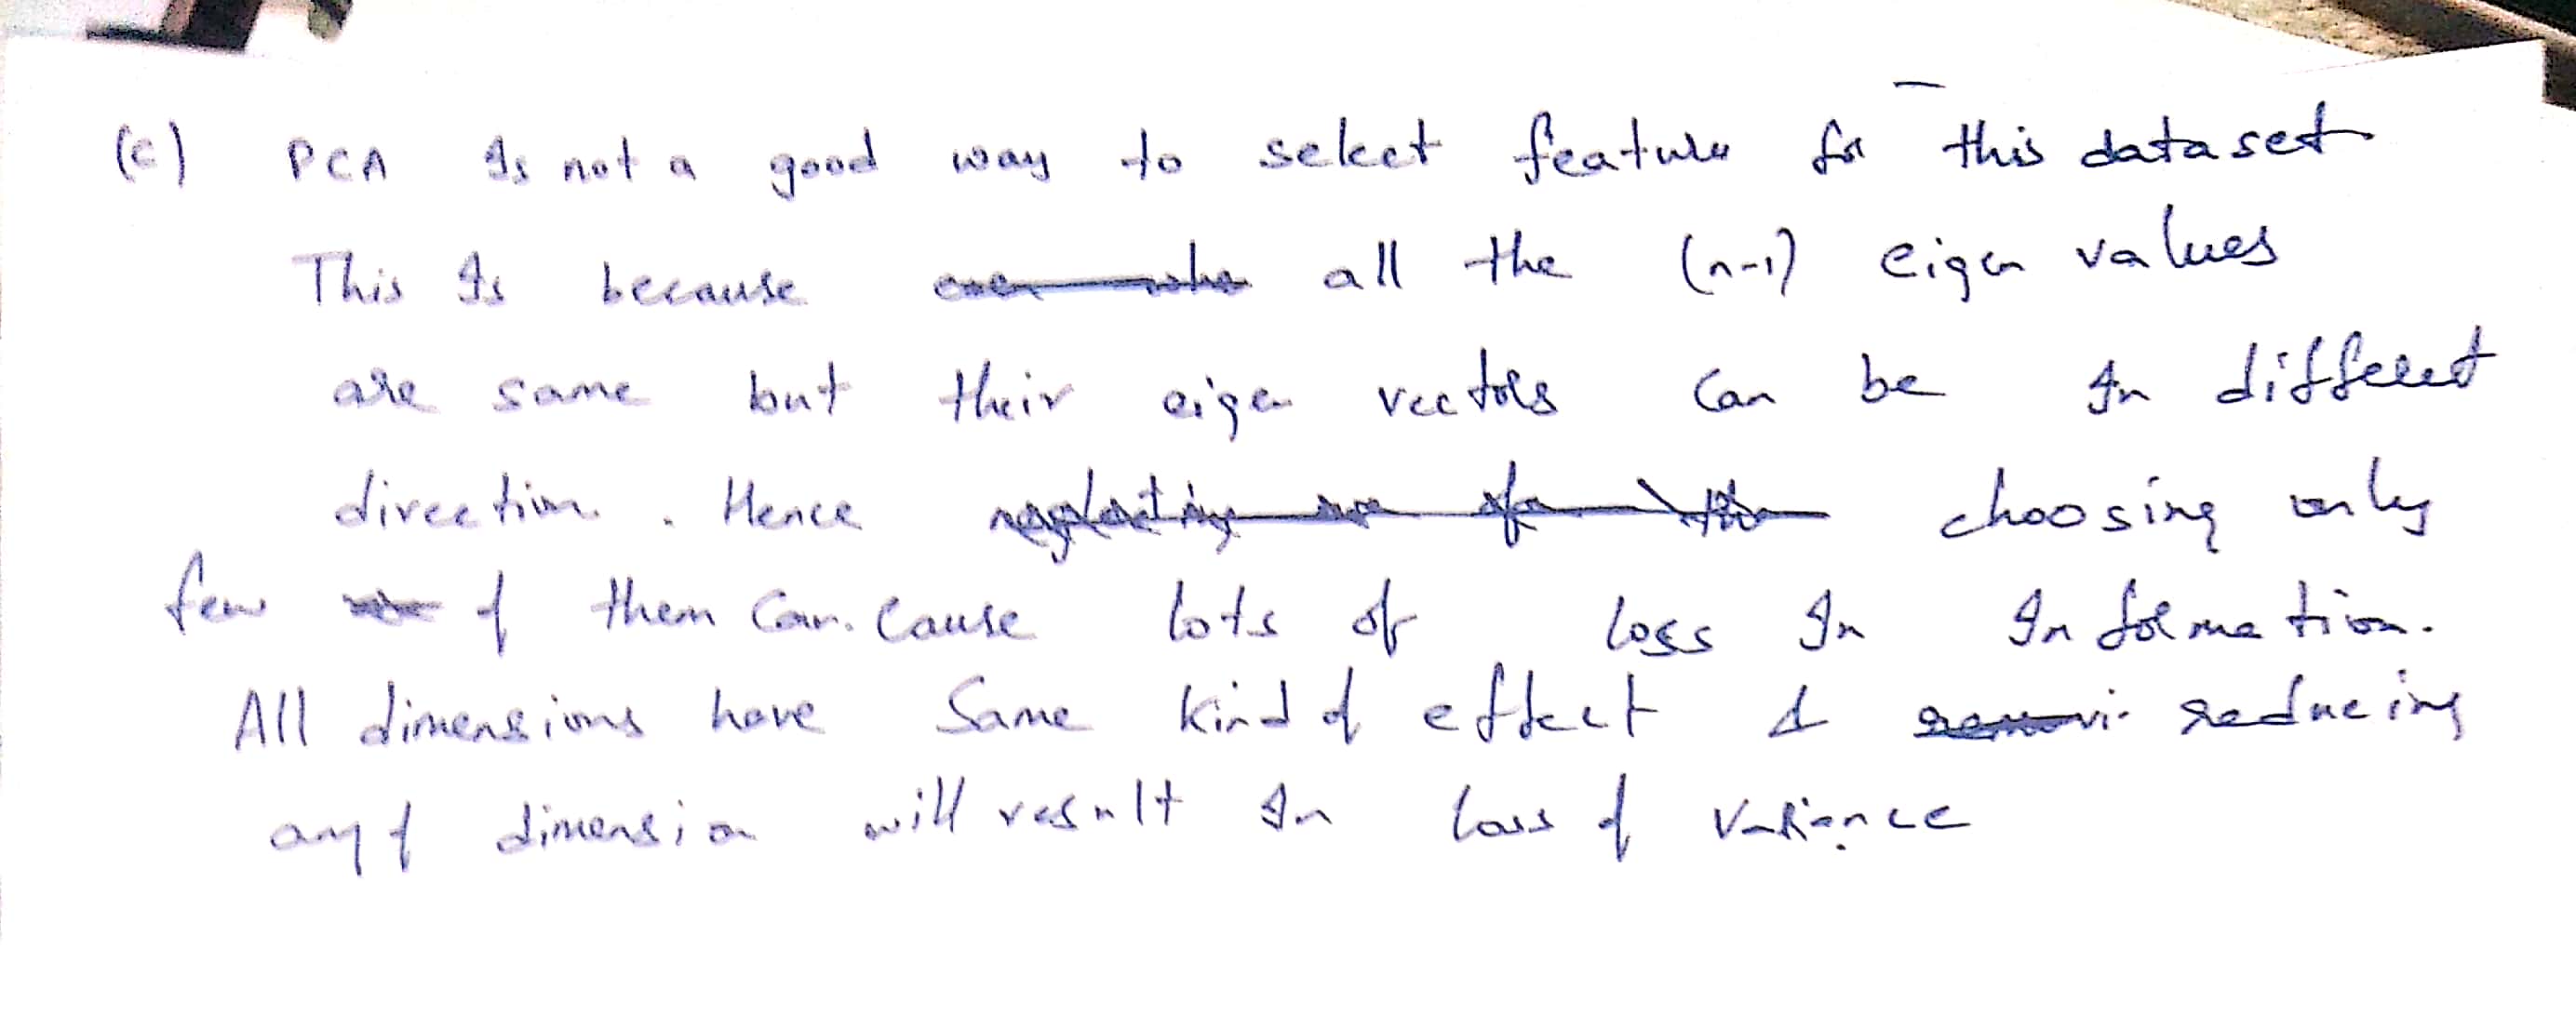 (c) PCA Is not a good way to select feature for this dataset
This Is because all the (n-1) eigen values
are same but their eigen vectors can be In different
direction. Hence neglecting choosing only
few of them can cause lots of loss In Information.
All dimensions have same kind of effect & reducing
any of dimension will result In loss of variance